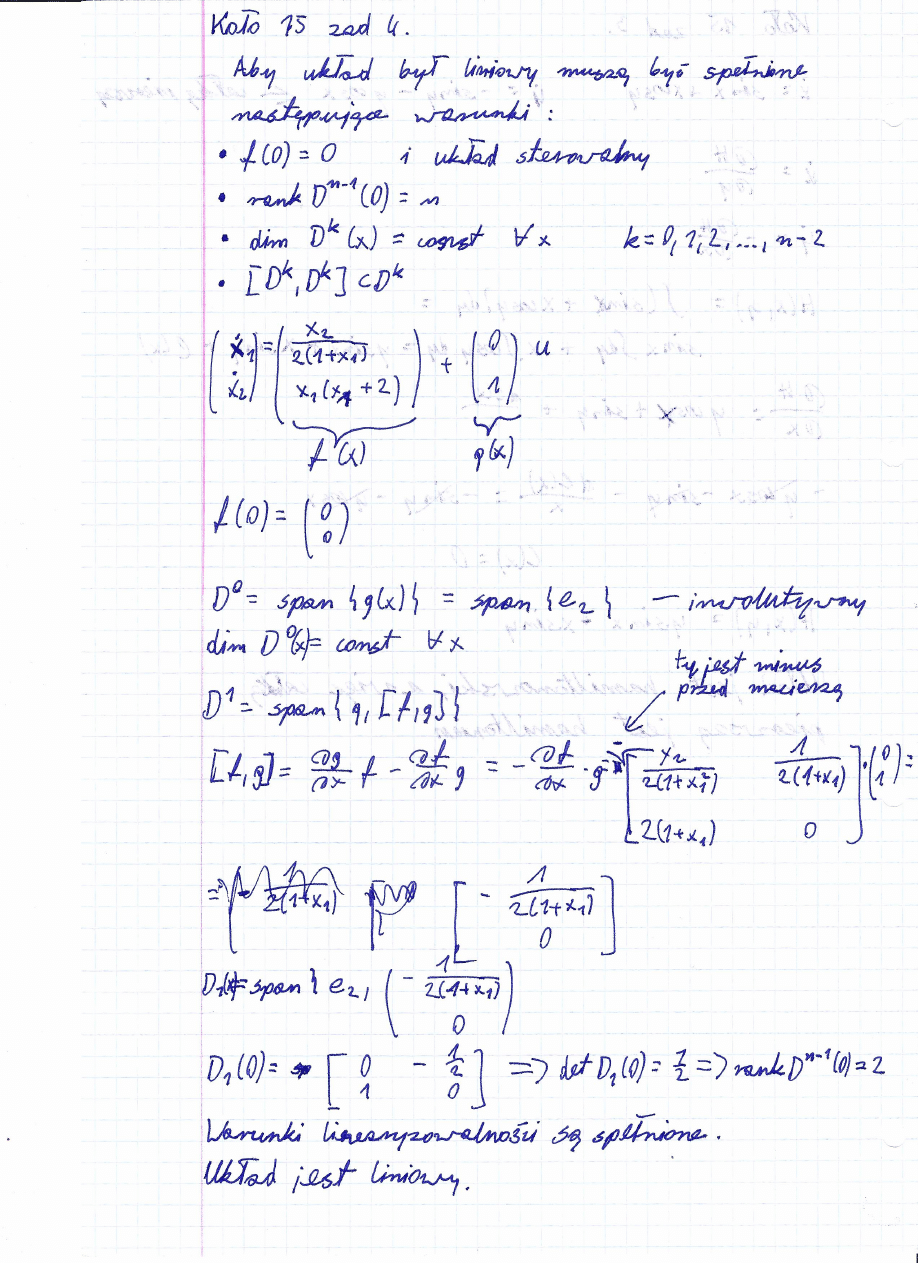 Koło 15 zad 4.
Aby układ był liniowy muszą być spełnione
następujące warunki:
• f(0) = 0 i układ sterowalny
• rank D^{n-1}(0) = n
• dim D^k(x) = const ∀x k = 0, 1, 2, ..., n-2
• [D^k, D^k] ⊂ D^k
(ẋ₁ ẋ₂) = (x₂/2(1+x₁) x₁(x₁+2)) + (0 1) u
f(x) g(x)
f(0) = (0 0)
D⁰ = span {g(x)} = span {e₂} — inwolutywny
dim D⁰(x) = const ∀x
tu jest minus
przed macierzą
D¹ = span {g, [f,g]}
[f,g] = ∂g/∂x f - ∂f/∂x g = -∂f/∂x · g = -[x₂/2(1+x₁²) 1/2(1+x₁) 2(1+x₁) 0] · (0 1) =
= [-1/2(1+x₁) 0]
D₁(x) = span {e₂, (-1/2(1+x₁) 0)
D₁(0) = [0 -1/2 1 0] => det D₁(0) = 1/2 => rank D^{n-1}(0) = 2
Warunki linearyzowalności są spełnione.
Układ jest liniowy.